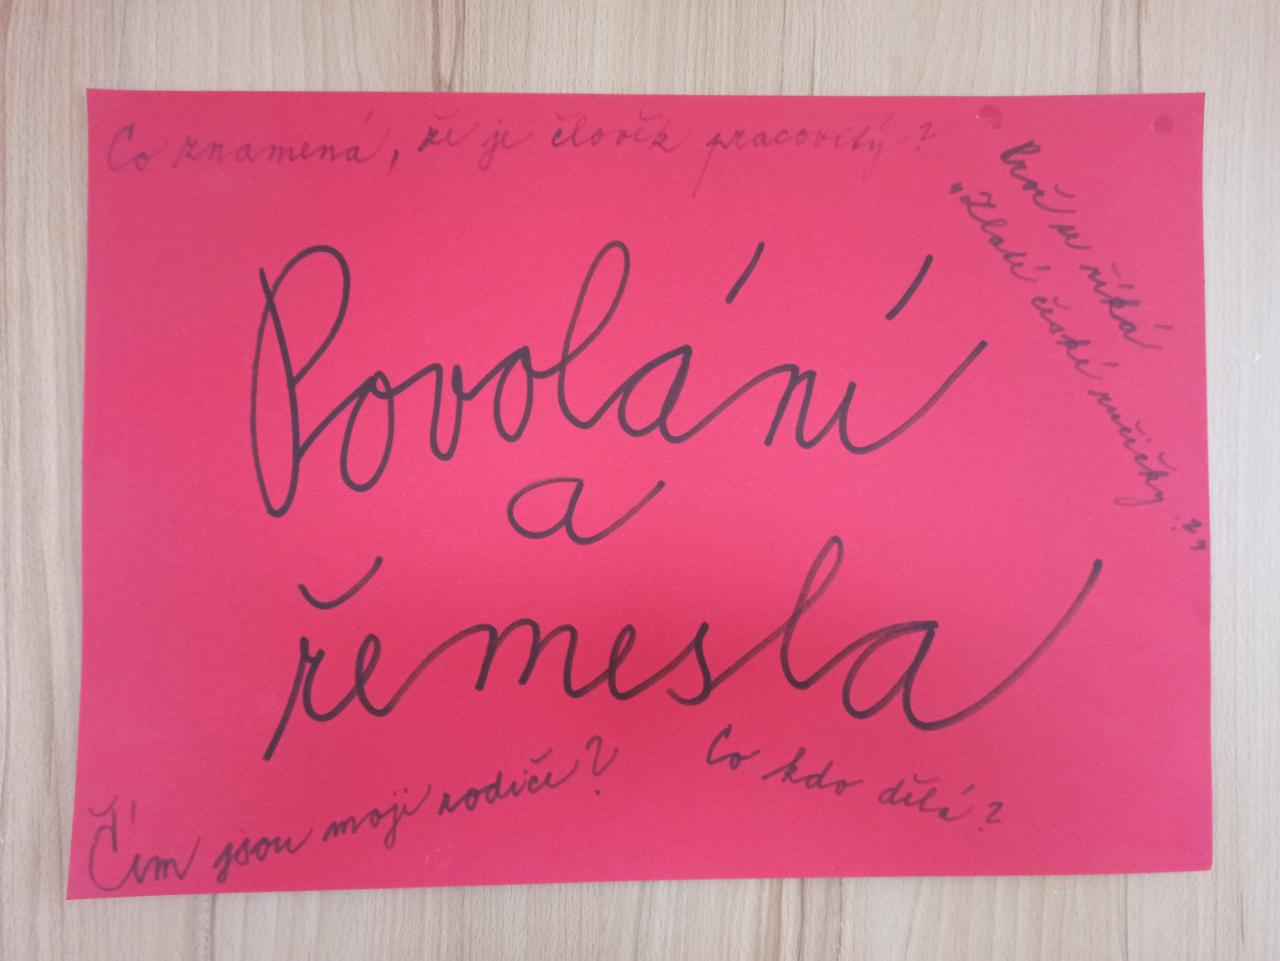 Co znamená, že je člověk pracovitý?
Proč se říká
"Zlaté české ručičky?"
Povolání
a
řemesla
Čím jsou moji rodiče?
Co kdo dělá?